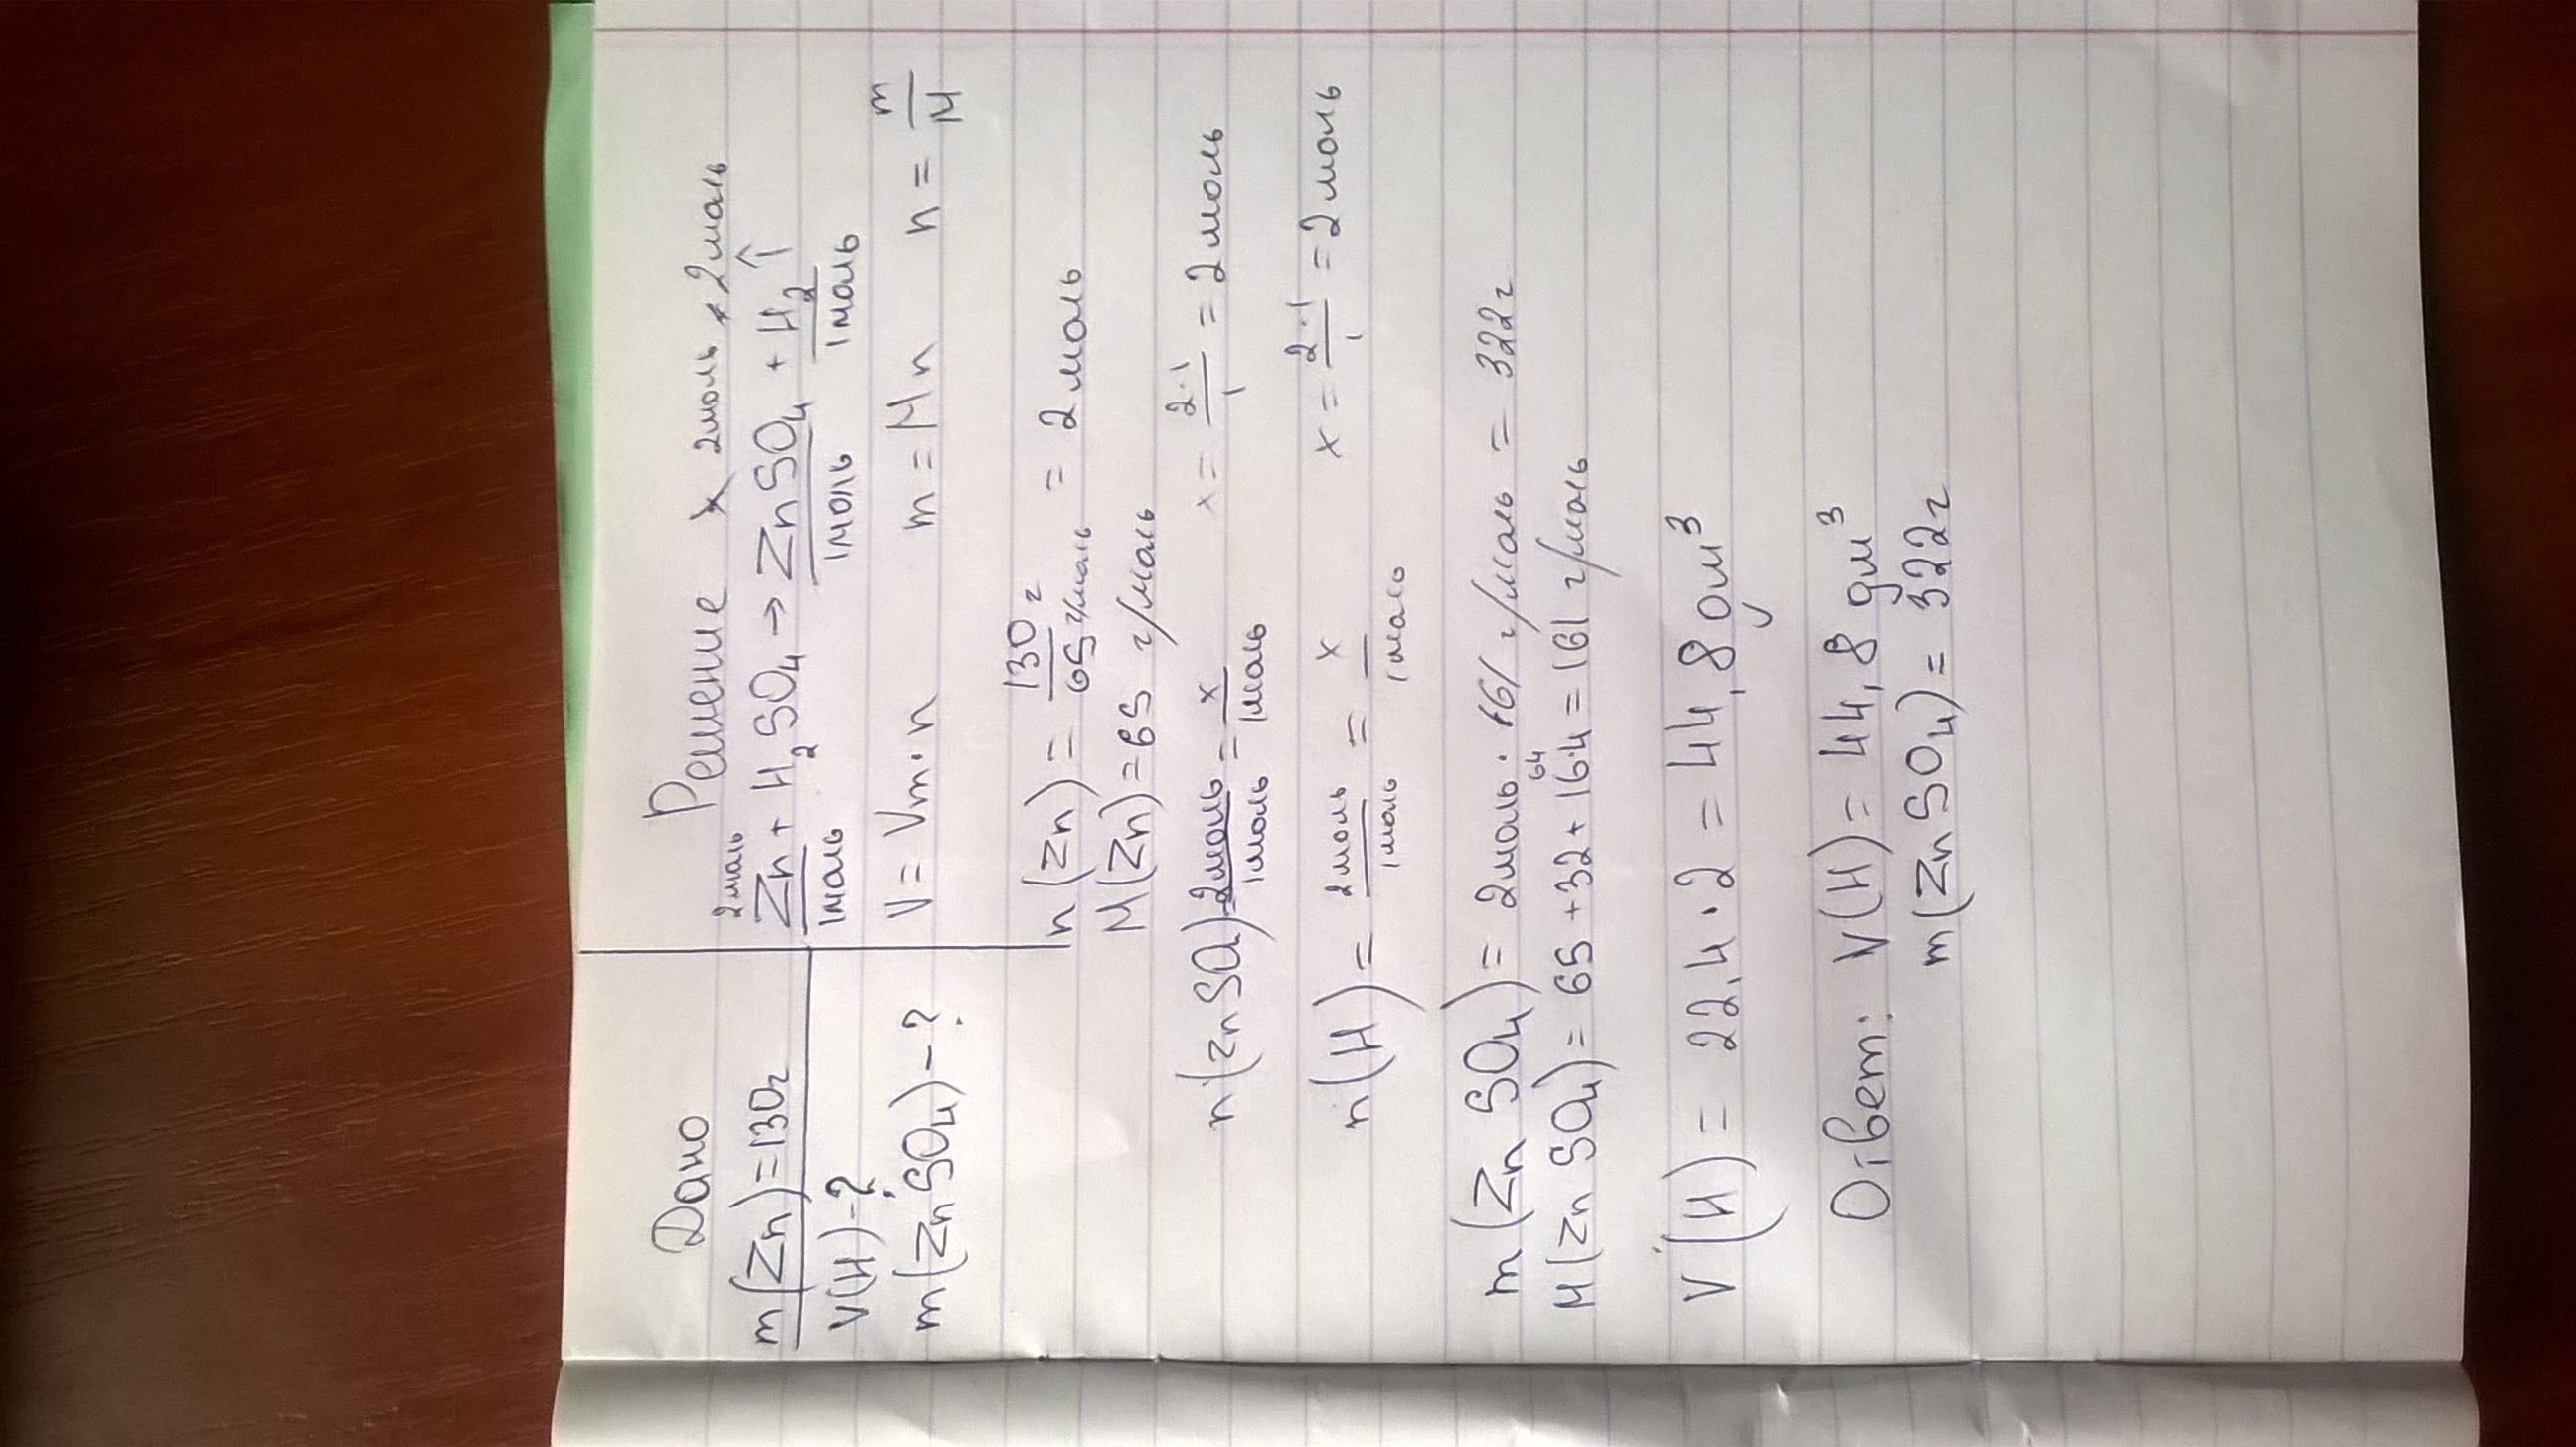 Дано
m(Zn)=130г
V(H)-?
m(ZnSO₄)-?
Решение
2моль x 2моль x 2моль
Zn + H₂SO₄ → ZnSO₄ + H₂↑
1моль 1моль 1моль
V = Vm·n m = Mn n = m/M
n(Zn) = 130г/65г/моль = 2моль
M(Zn)=65 г/моль
n(ZnSO₄)=2моль/1моль = x/1моль x = 2·1/1 = 2моль
n(H) = 2моль/1моль = x/1моль x = 2·1/1 = 2моль
m(ZnSO₄) = 2моль · 161 г/моль = 322г
64
M(ZnSO₄) = 65+32+16·4 = 161 г/моль
V(H) = 22,4·2 = 44,8дм³
Ответ: V(H) = 44,8 дм³
m(ZnSO₄) = 322г